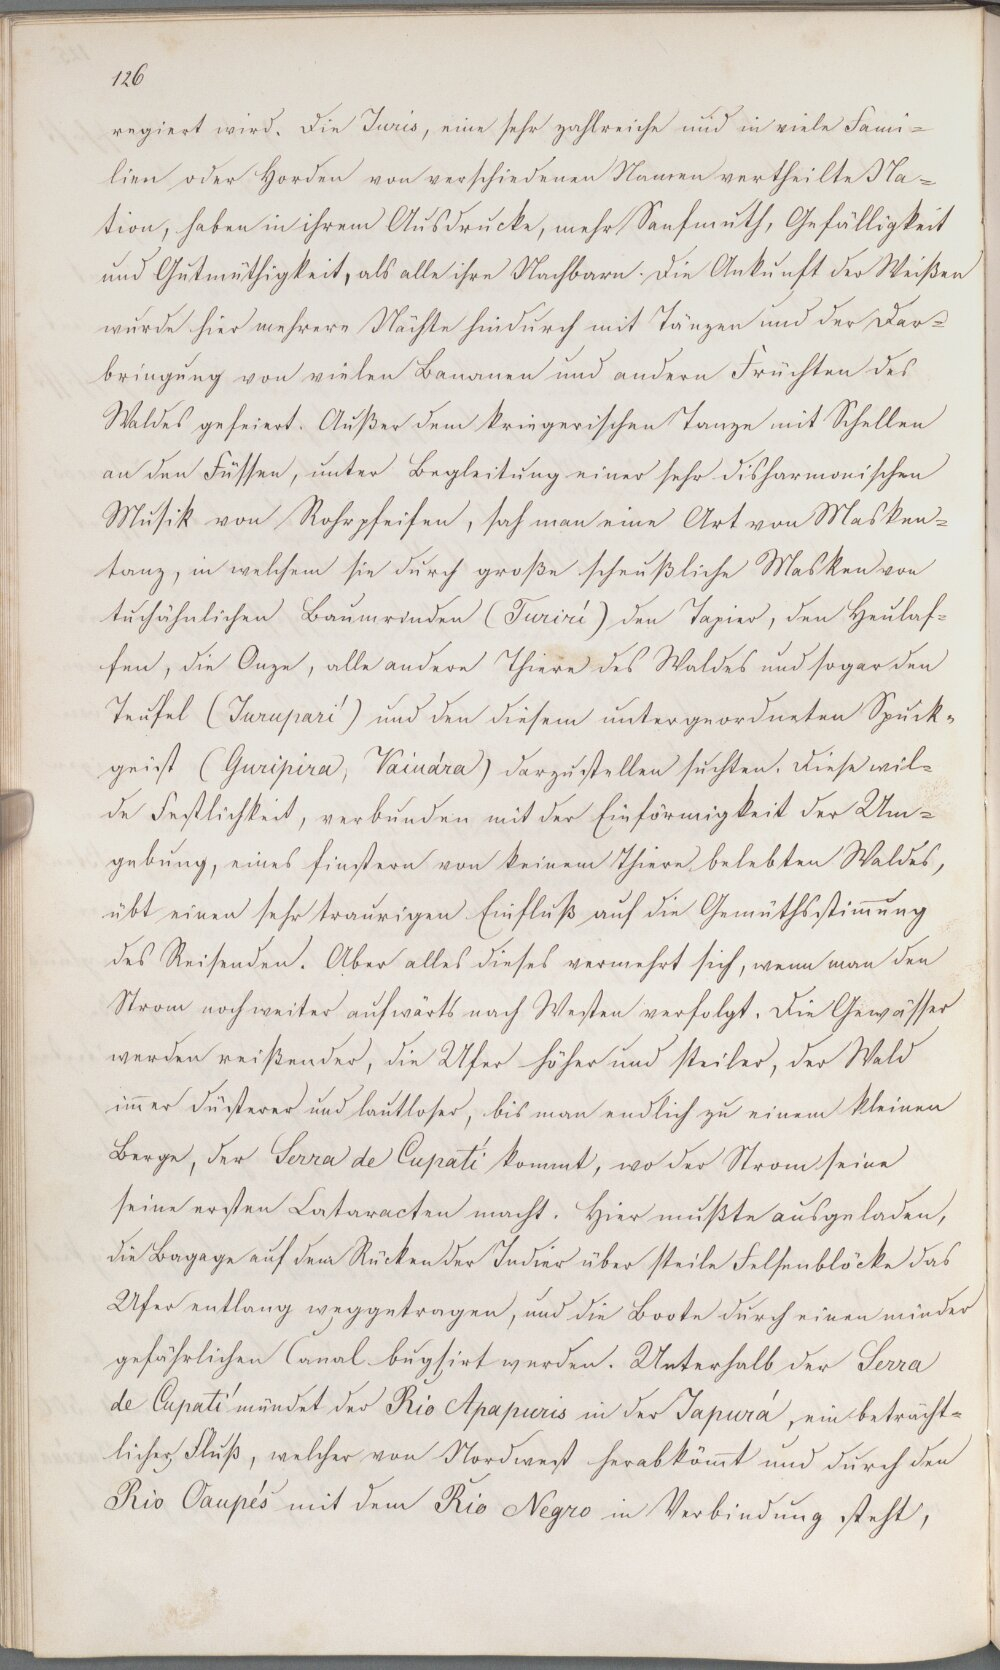 126
regiert wird. Die Juris, eine sehr zahlreiche und in viele Fami=
lien oder Horden von verschiedenen Namen vertheilte Na=
tion, haben in ihrem Ausdrucke, mehr Sanfmuth, Gefälligkeit
und Gutmüthigkeit, als alle ihre Nachbarn. Die Ankunft der Weißen
wurde hier mehrere Nächte hindurch mit Tänzen und der Dar=
bringung von vielen Bananen und andern Früchten des
Waldes gefeiert. Außer dem kriegerischen Tanze mit Schellen
an den Füssen, unter Begleitung einer sehr disharmonischen
Musik von Rohrpfeifen, sah man eine Art von Masken=
tanz, in welchem sie durch große scheußliche Masken von
tuchähnlichen Baumrinden (Turirí) den Tapier, den Heulaf=
fen, die Onze, alle andere Thiere des Waldes und sogar den
Teufel (Jurupari´) und den diesem untergeordneten Spuck=
geist (Guripira, Vaiuára) darzustellen suchten. Diese wil=
de Festlichkeit, verbunden mit der Einförmigkeit der Um=
gebung, eines finstern von keinem Thiere belebten Waldes,
übt einen sehr traurigen Einfluß auf die Gemüthsstim̄ung
des Reisenden. Aber alles dieses vermehrt sich, wenn man den
Strom noch weiter aufwärts nach Westen verfolgt. Die Gewässer
werden reißender, die Ufer höher und steiler, der Wald
im̄er düsterer und lautloser, bis man endlich zu einem kleinen
Berge, der Serra de Cupati´ kommt, wo der Strom seine
seine ersten Cataracten macht. Hier mußte ausgeladen,
die Bagage auf dem Rücken der Indier über steile Felsenblöcke das
Ufer entlang weggetragen, und die Boote durch einen minder
gefährlichen Canal bugsirt werden. Unterhalb der Serra
de Cupati´ mündet der Rio Apapuris in der Japurá, ein beträcht=
licher Fluß, welcher von Nordwest herabköm̄t und durch den
Rio Oaupés mit dem Rio Negro in Verbindung steht,